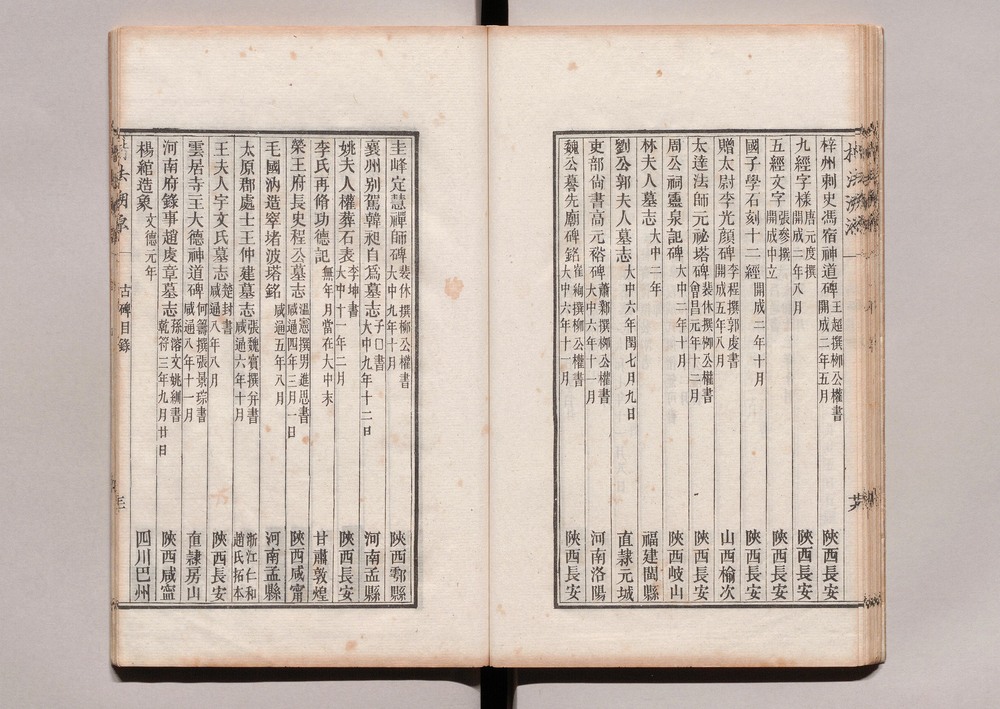 梓州刺史馮宿神道碑 王起撰柳公權書 開成二年五月 陝西長安
九經字樣 唐元度撰 開成二年八月 陝西長安
五經文字 張參撰 開成中立 陝西長安
國子學石刻十二經 開成二年十月 陝西長安
贈太尉李光顏碑 李程撰郭虔書 開成五年八月 山西榆次
太達法師元祕塔碑 裴休撰柳公權書 會昌元年十二月 陝西長安
周公祠靈泉記碑 大中二年十月 陝西岐山
林夫人墓志 大中二年 福建閩縣
劉公郭夫人墓志 大中六年閏七月九日 直隸元城
吏部尚書高元裕碑 蕭鄴撰柳公權書 大中六年十一月 河南洛陽
魏公謩先廟碑銘 崔絢撰柳公權書 大中六年十一月 陝西長安
圭峰定慧禪師碑 裴休撰柳公權書 大中九年十月 陝西鄠縣
襄州別駕韓昶自爲墓志 子口書 大中九年十二日 河南孟縣
姚夫人權葬石表 李坤書 大中十一年二月 陝西長安
李氏再脩功德記 無年月當在大中末 甘肅敦煌
榮王府長史程公墓志 溫憲撰男進思書 咸通四年三月一日 陝西咸甯
毛國汭造窣堵波塔銘 咸通五年八月 河南孟縣
太原郡處士王仲建墓志 張魏賓撰幷書 咸通六年十月 浙江仁和趙氏拓本
王夫人宇文氏墓志 楚封書 咸通八年八月 陝西長安
雲居寺主大德神道碑 何籌撰張景琮書 咸通八年十一月 直隸房山
河南府錄事趙虔章墓志 孫溶文姚紃書 乾符三年九月廿日 陝西咸甯
楊綰造象 文德元年 四川巴州
古碑目錄